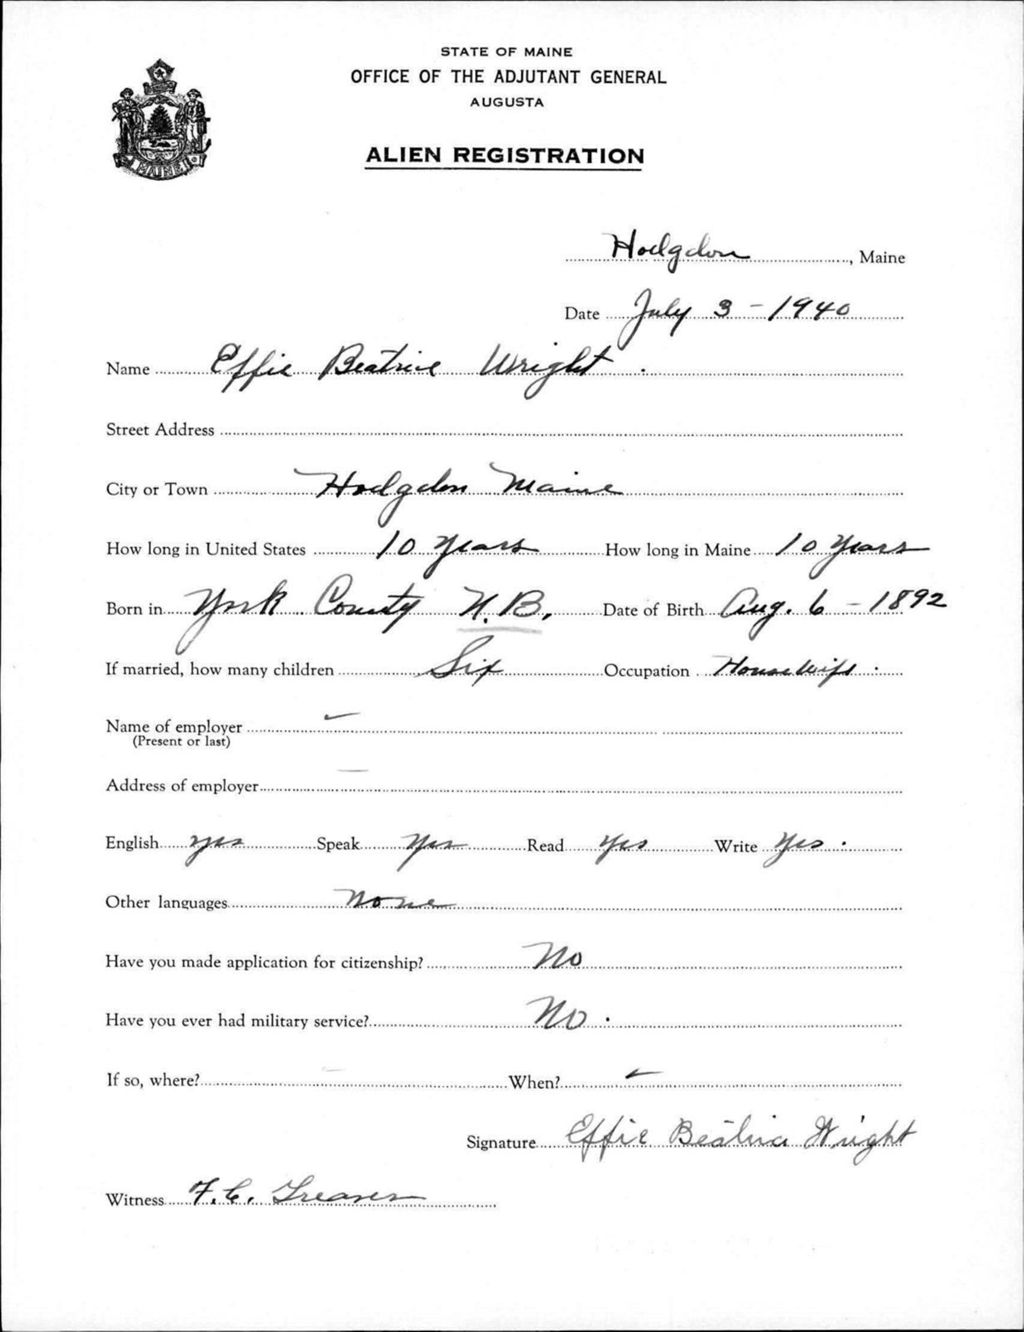 STATE OF MAINE
OFFICE OF THE ADJUTANT GENERAL
AUGUSTA
ALIEN REGISTRATION
MAINE
Hodgdon, Maine
Date July 3 - 1940
Name Effie Beatrice Wright.
Street Address
City or Town Hodgdon Maine
How long in United States 10 Years How long in Maine 10 Years
Born in York County N.B. Date of Birth Aug. 6 - 1892
If married, how many children Six Occupation Housewife.
Name of employer
(Present or last)
Address of employer
English yes Speak Yes Read Yes Write Yes.
Other languages None
Have you made application for citizenship? No
Have you ever had military service? No.
If so, where? When?
Signature Effie Beatrice Wright
Witness F. C.